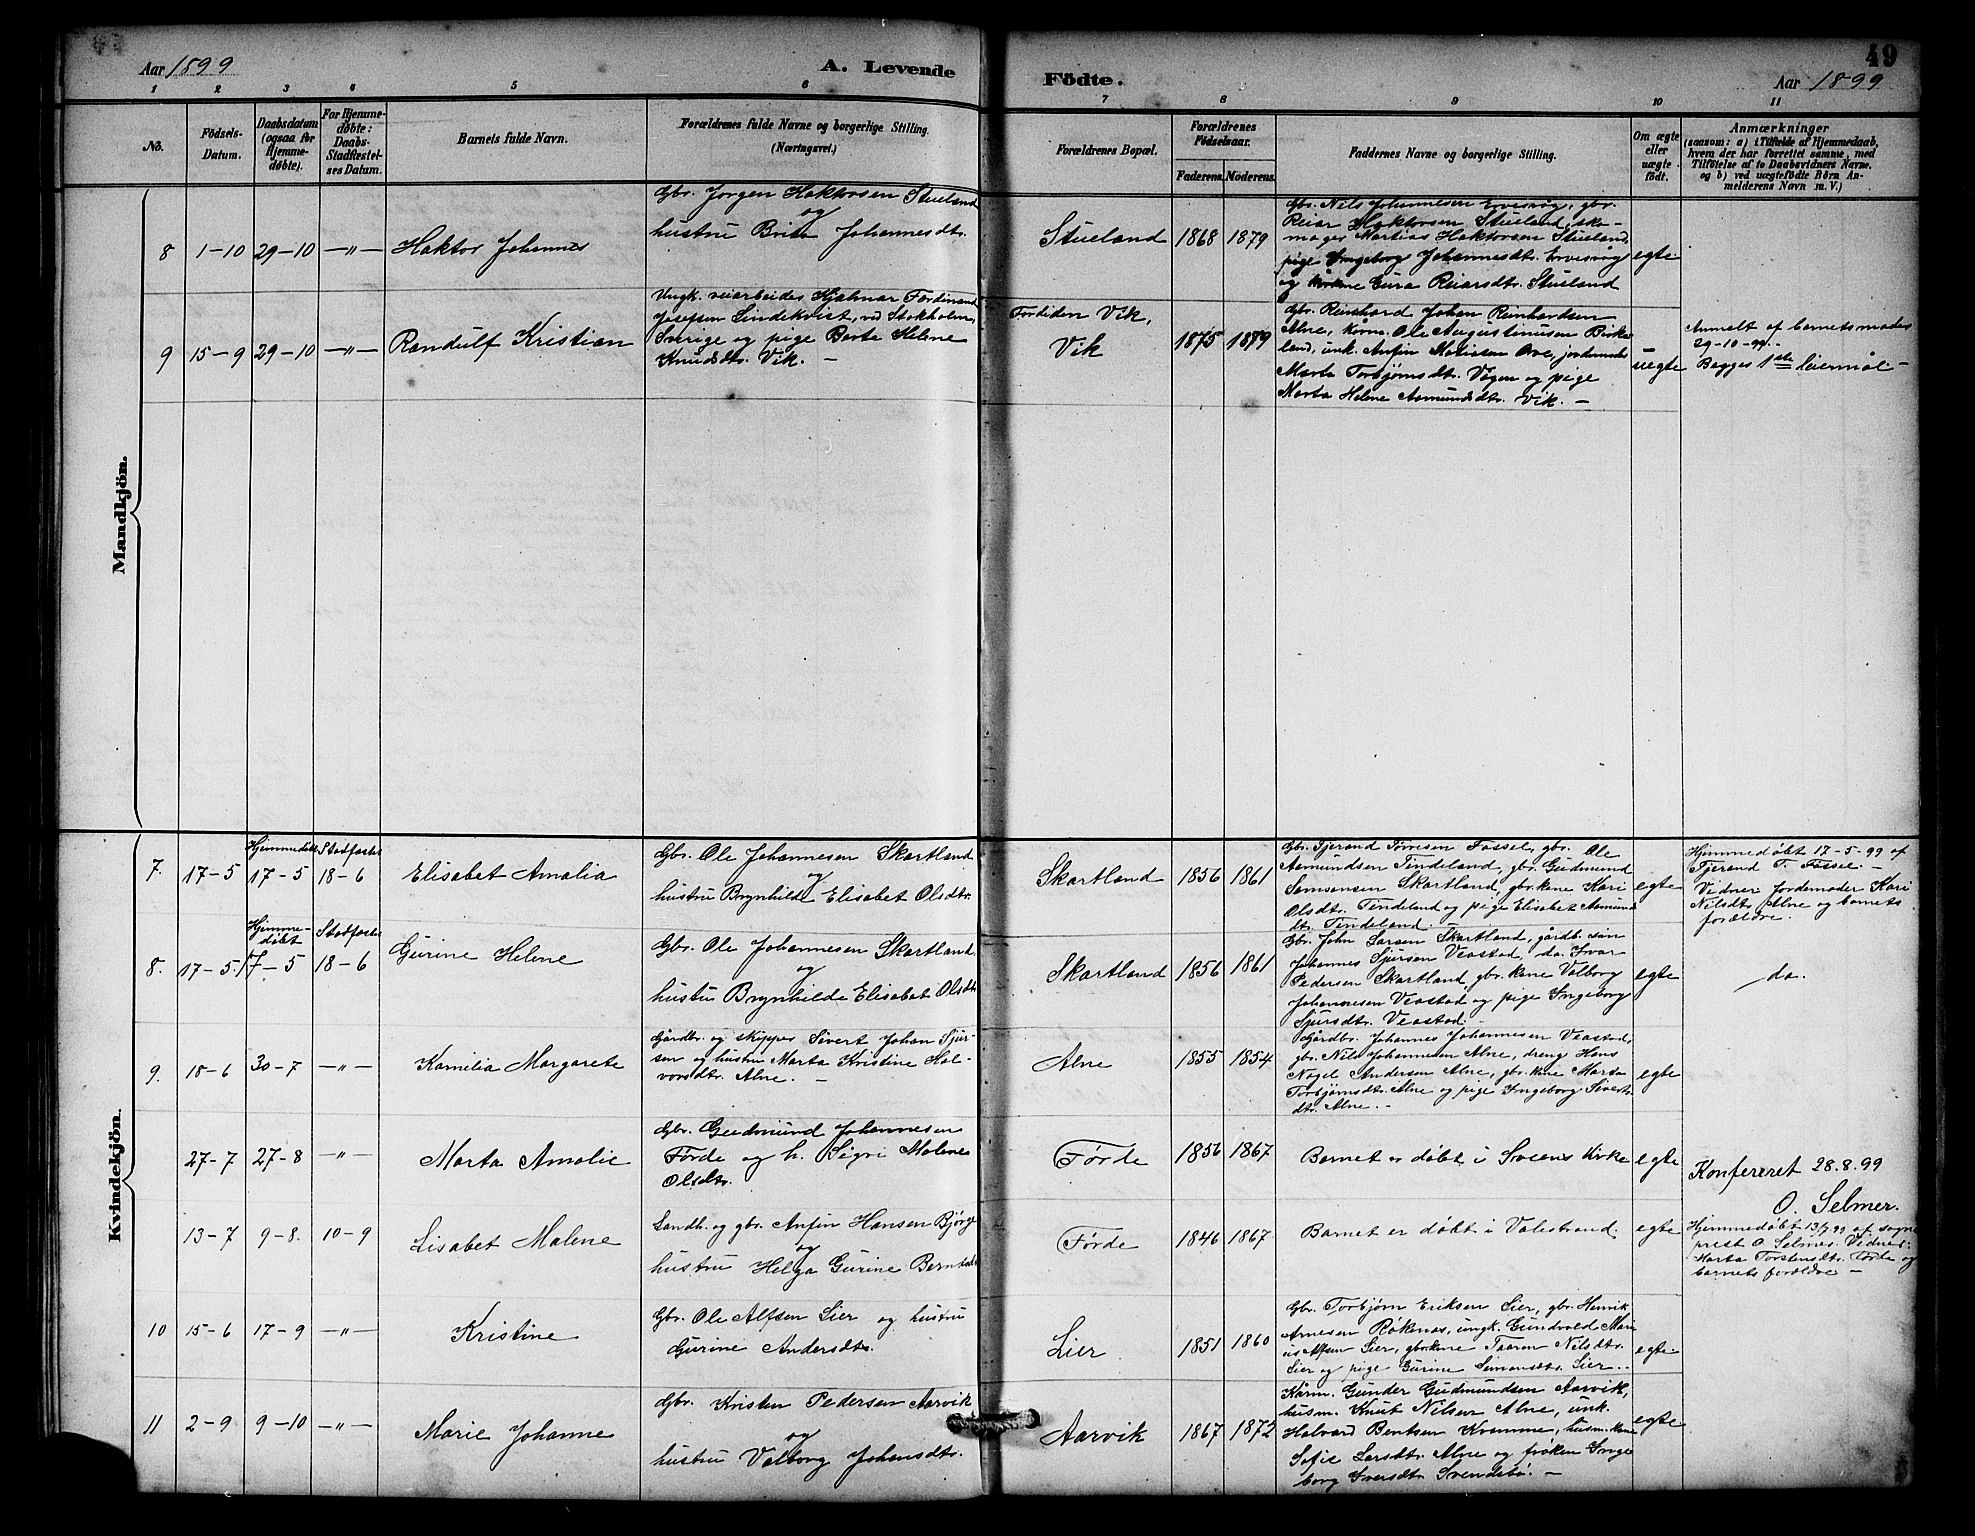 49
Aar 1899
A. Levende
Födte.
Aar 1899
1 2 3 4 5 6 7 8 9 10 11
No.
Födsels-
Datum.
Daabsdatum
(ogsaa for
Hjemme-
døbte).
For Hjemme-
døbte:
Daabs-
Stadfæstel-
ses Datum.
Barnets fulde Navn.
Forældrenes fulde Navne og borgerlige Stilling.
(Næringsvei.)
Forældrenes Bopæl.
Forældrenes
Födselsaar.
Faderens.
Moderens.
Faddernes Navne og borgerlige Stilling.
Om ægte
eller
uægte
födt.
Anmærkninger
(saasom: a) i Tilfælde af Hjemmedaab,
hvem der har forrettet samme, med
Tilföielse af to Daabsvidners Navne,
og b) ved uægtefödte Börn An-
melderens Navn m. V.)
Mandkjön.
8
1-10
29-10
-"-
Haktor Johannes
Gbr. Jørgen Haktorsen Stueland
og
hustru Brita Johannesdtr.
Stueland
1868
1879
Gbr. Nils Johannesen Ervesvåg, gbr.
Reiar Haktorsen Stueland, sko-
mager Mathias Haktorsen Stueland,
pige Ingeborg Johannesdtr. Ervesvåg
og kone Gura Reiarsdtr. Stueland
egte
9
15-9
29-10
-"-
Randulf Kristian
Ungk. veiarbeider Hjalmar Ferdinand
Josefsen Lindekvist, ved Stokholm,
Sverige og pige Berta Helene
Knudsdtr. Vik. -
Fortiden Vik,
Vik
1875
1879
Gbr. Reinhard Johan Reinhardsen
Alne, kårm. Ole Augustinusen Birke-
land, unk. Anfin Ove, jordemoder
Marta Torbjørnsdtr. Vågen og pige
Marta Helene Asmundsdtr. Vik. -
uegte
Anmelt af barnets moder
29-10-99.
Begges 1ste leiermål. -
Kvindekjön.
7.
17-5
Hjemmedøbt
17-5
Stadfæstet
18-6
Elisabet Amalia
Gbr. Ole Johannesen Skartland
og
hustru Brynhilde Elisabet Olsdtr.
Skartland
1856
1861
Gbr. Tjerand Tørresen Fossel, gbr. Ole
Asmundsen Tindeland, gbr. Gudmund
Samsonsen Skartland, gbr.kone Kari
Olsdtr. Tindeland og pige Elisabet Asmund
dtr. Tindeland.
egte
Hjemmedøbt 17-5-99 af
Tjerand T. Fossel. -
Vidner: Jordemoder Kari
Nilsdtr. Alne og barnets
forældre.
8.
17-5.
Hjemme-
døbt
17-5
Stadfæstet
18-6
Gurine Helene
Gbr. Ole Johannesen Skartland
og
hustru Brynhilde Elisabet Olsdtr.
Skartland
1856
1861
Gbr. John Larsen Skartland, gårdb. søn
Johannes Sjursen Veastad, do. Ivar
Pedersen Skartland, gbr. kone Valborg
Johannesen Veastad og pige Ingeborg
Sjursdtr. Veastad.
egte
do.
9.
18-6
30-7
-"-
Kamilia Margarete
Gårdbr. og skipper Sivert Johan Sjur-
sen og hustru Marta Kristine Hal-
vorsdtr. Alne. -
Alne
1855
1854
Gårdbr. Johannes Johannesen Veastad,
gbr. Nils Johannesen Alne, dreng Hans
Nagel Andersen Alne, gbr. kone Marta
Torbjørnsdtr. Alne og pige Ingeborg Siverts
dtr. Alne. -
egte
27-7
27-8
-"-
Marta Amalie
Gbr. Gudmund Johannesen
Førde og h. Sigri Malene
Olsdtr.
Førde
1856
1867
Barnet er døbt i Sveens Kirke
egte
Konfereret 28.8.99
O. Selmer.
13-7
9-8.
10-9
Lisabet Malene
Landh. og gbr. Anfin Hansen Bjørge
og
hustru Helga Gurine
Førde
1846
1867
Barnet er døbt i Valestrand.
egte
Hjemmedøbt 13/7 99 af sogne
prest O. Selmer. Vidner:
Marta Torstensdtr. Førde og
barnets forældre -
10
15-6
17-9
-"-
Kristine
Gbr. Ole Alfsen Lier og hustru
Gurine Andersdtr.
Lier
1851
1860
Gbr. Torbjørn Eriksen Lier, gbr. Henrik
Arnesen Røkenes, ungk. Gundvald Mari
us Alfsen Lier, gbr.kone Taaren Nilsdtr.
Lier og pige Gurine Simonsdtr. Lier. -
egte
11
2-9
9-10
-"-
Marie Johanne
Gbr. Kristen Pedersen Aarvik
og
hustru Valborg Johansdtr.
Aarvik
1867
1872
Kårm. Gunder Gudmundsen Aarvik,
husm. Knut Nilsen Alne, unk.
Halvard Bentsen Kvamme, husm. kone
Sofie Larsdtr. Alne og frøken Inge
borg Iversdtr. Svendsbø. -
egte